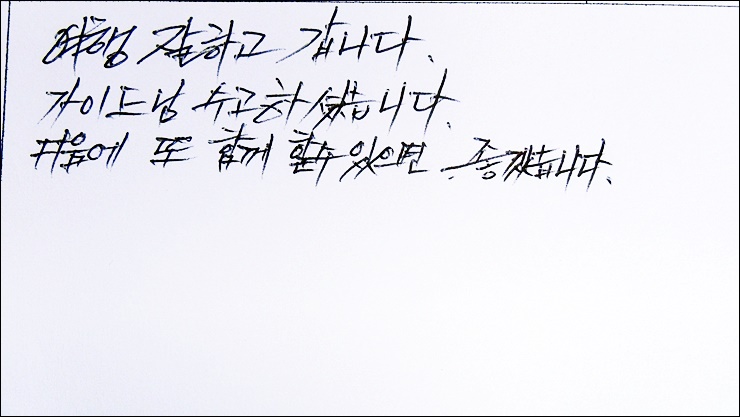 여행 잘하고 갑니다.
가이드님 수고하셨습니다.
다음에 또 함께 할수있으면 좋겠습니다.